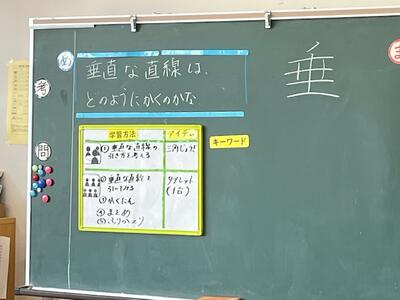 め
垂直な直線は、
どのようにかくのかな
垂
ま
考
問
学習方法
アイテム
キーワード
①垂直な直線の
引き方を考える
三角じょうぎ
②垂直な直線を
タブレット
(1台)
③かくにん
④まとめ
⑤ふりかえり